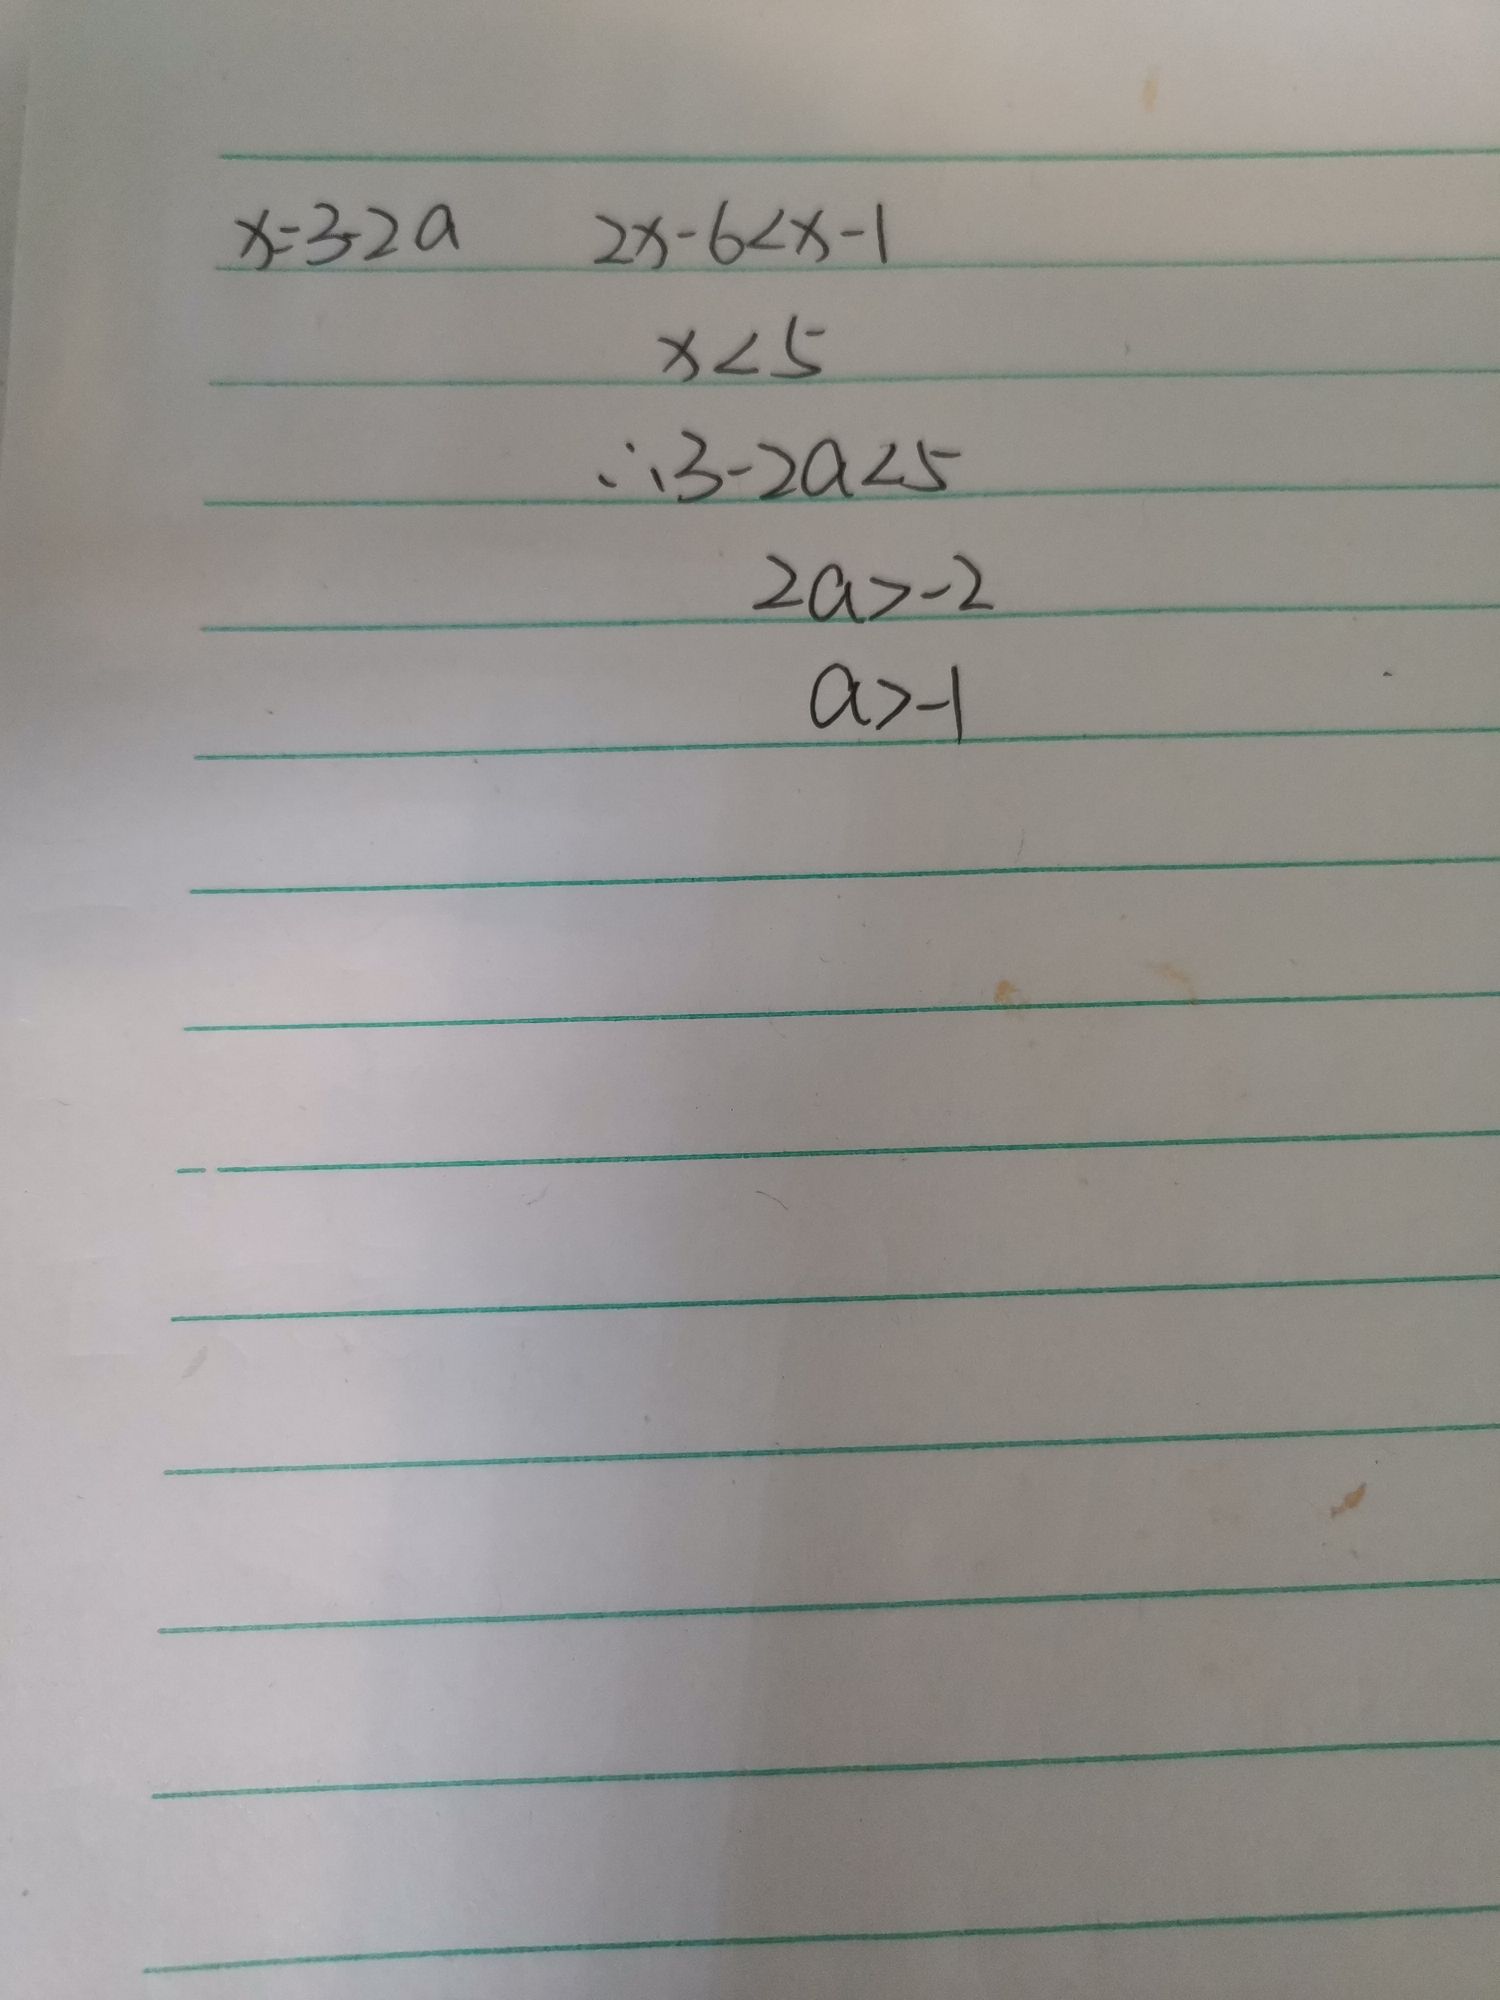 x=3-2a 2x-6<x-1
x<5
∴3-2a<5
2a>-2
a>-1